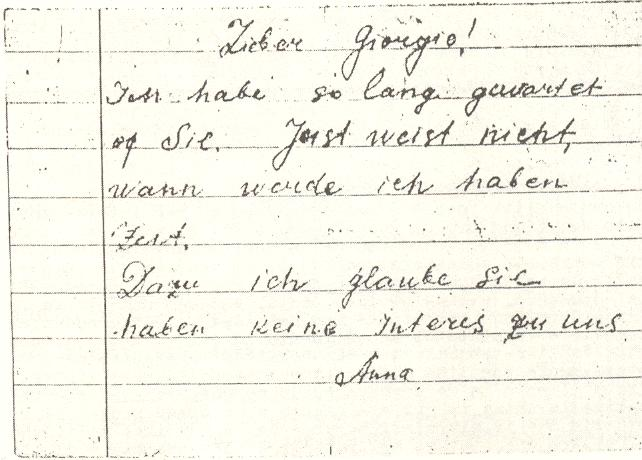 Lieber Giorgio!
Ich habe so lang gewartet
of Sie. Jest weist nicht,
wann warde ich haben
Zeit.
Dazu ich glaube Sie
haben keine Interes zu uns
Anna